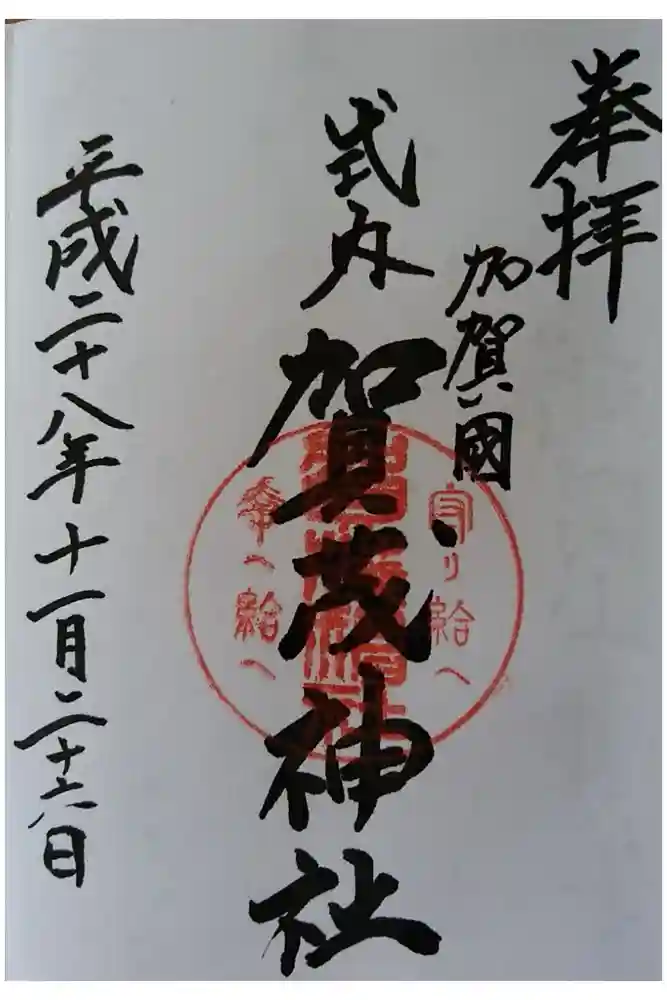 奉拝
加賀国
式内
賀茂神社
守り給へ
幸へ給へ
平成二十八年十一月二十六日